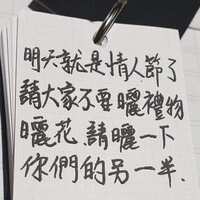 明天就是情人節了
請大家不要曬禮物
曬花.請曬一下
你們的另一半.